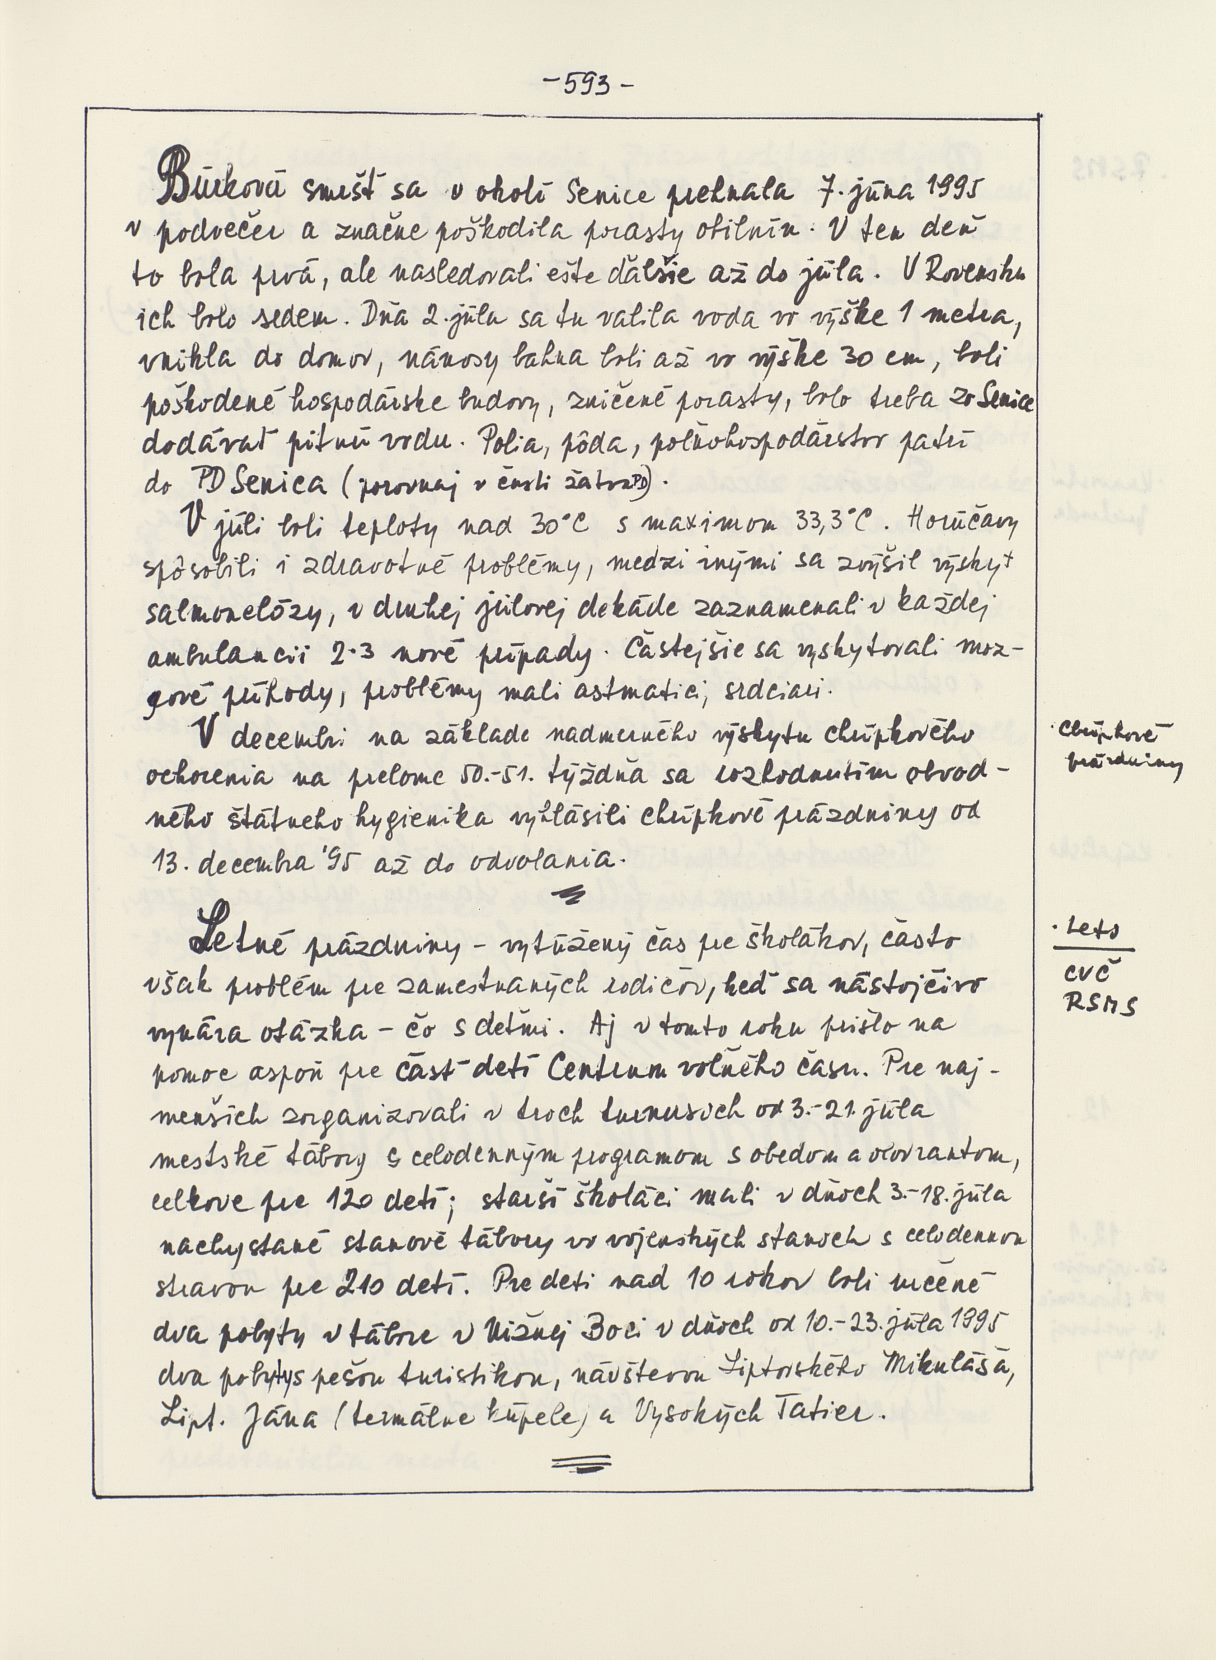 -593-
Búrková smršť sa v okolí Senice prehnala 7. júna 1995
v podvečer a značne poškodila porasty obilnín. V ten deň
to bola prvá, ale nasledovali ešte ďalšie až do júla. V Rovensku
ich bolo sedem. Dňa 2. júla sa tu valila voda vo výške 1 metra,
vnikla do domov, nánosy bahna boli až vo výške 30 cm, boli
poškodené hospodárske budovy, zničené porasty, bolo treba zo Senice
dodávať pitnú vodu. Polia, pôda, poľnohospodárstvo patrí
do PD Senica (porovnaj v časti žatva PD).
V júli boli teploty nad 30°C s maximom 33,3°C. Horúčavy
spôsobili i zdravotné problémy, medzi inými sa zvýšil výskyt
salmonelózy, v druhej júlovej dekáde zaznamenali v každej
ambulancii 2-3 nové prípady. Častejšie sa vyskytovali moz-
gové príhody, problémy mali astmatici, srdciari.
V decembri na základe nadmerného výskytu chrípkového
ochorenia na prelome 50.-51. týždňa sa rozhodnutím obvod-
ného štátneho hygienika vyhlásili chrípkové prázdniny od
13. decembra '95 až do odvolania.
· Chrípkové
prázdniny
Letné prázdniny - vytúžený čas pre školákov, často
však problém pre zamestnaných rodičov, keď sa nástojčivo
vynára otázka - čo s deťmi. Aj v tomto roku prišlo na
pomoc aspoň pre časť detí Centrum voľného času. Pre naj-
menších zorganizovali v troch turnusoch od 3.-21. júla
mestské tábory s celodenným programom s obedom a olovrantom,
celkove pre 120 detí; starší školáci mali v dňoch 3.-18. júla
nachystané stanové tábory vo vojenských stanoch s celodennou
stravou pre 210 detí. Pre deti nad 10 rokov boli určené
dva pobyty v tábore v Nižnej Boci v dňoch od 10.-23. júla 1995
dva pobyty s pešou turistikou, návštevou Liptovského Mikuláša,
Lipt. Jána (termálne kúpele) a Vysokých Tatier.
· Leto
CVČ
RSMS